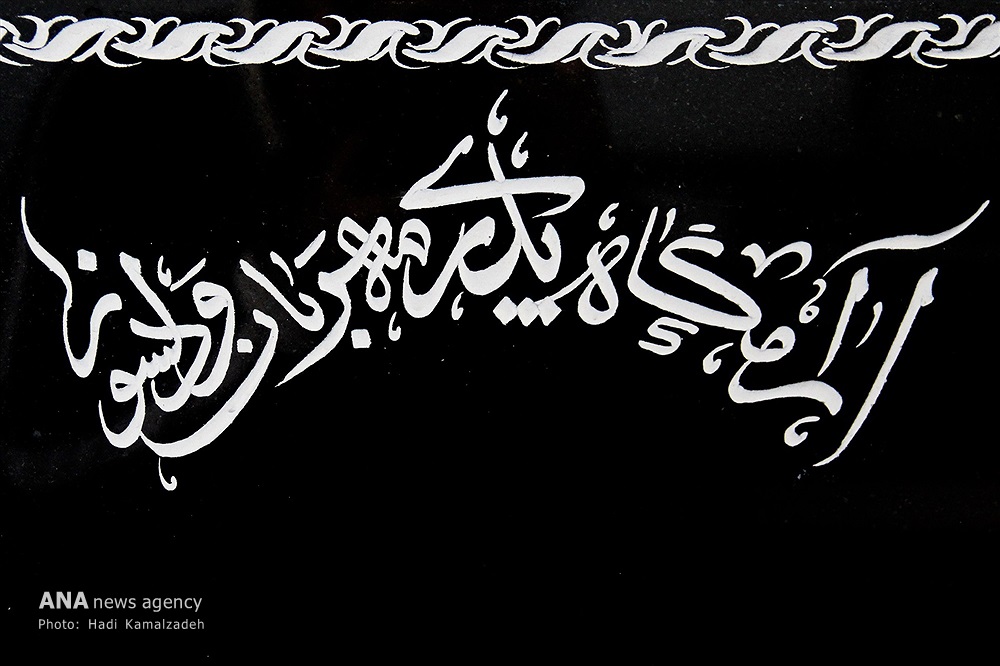 آرامگاه پدری مهربان و دلسوز
ANA news agency
Photo: Hadi Kamalzadeh